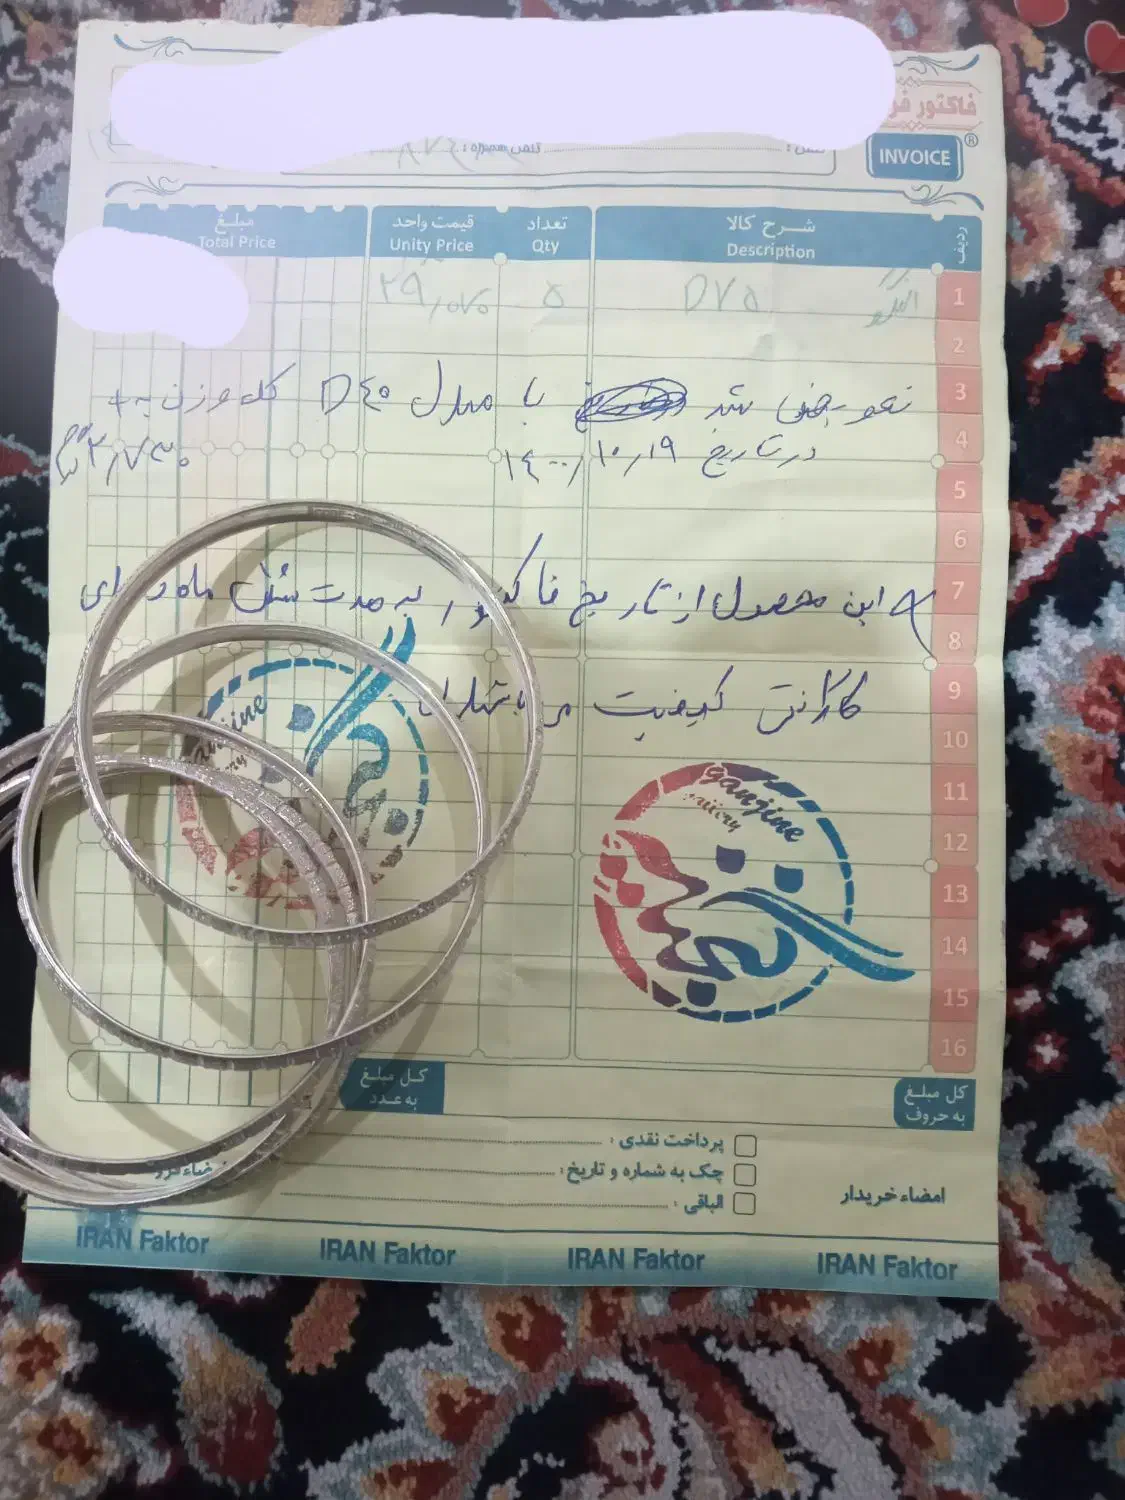 فاکتور فر
INVOICE
تلفن همراه :
ردیف شرح کالا تعداد قیمت واحد مبلغ
Description Qty Unity Price Total Price
1 النگو D۷۵ ۵ ۲۹/۰۷۰
2
3 تعویض شد با مدل D۴۰ که وزن به +
4 در تاریخ ۱۴۰۰/۱۰/۱۹
5
6
7 این محصول از تاریخ فاکتور به مدت شش ماه دارای
8
9 گارانتی کیفیت می‌باشد
10
11
12
13
14
15
16
ganjine
ganjine
کل مبلغ به حروف
کل مبلغ به عدد
پرداخت نقدی :
چک به شماره و تاریخ :
الباقی :
امضاء خریدار
IRAN Faktor IRAN Faktor IRAN Faktor IRAN Faktor